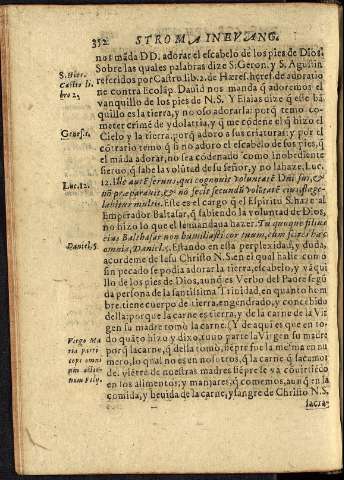 352 STROMA IN EVANG.
nos mãda DD. adorar el escabelo de los pies de Dios.
Sobre las quales palabras dize S. Geron. y S. Agustin
S. Hier.
Castro li-
bro 2.
referidos por Castro lib. 2. de Hæres. hæres. de adoratio
ne contra Ecolãp. Dauid nos manda q̃ adoremos el
vanquillo de los pies de N. S. Y Esaias dize q̃ este bã-
quillo es la tierra, y no oso adorarla: porq̃ temo co-
meter crimẽ de ydolatria, y q̃ me cõdene el q̃ hizo el
Genes. 1.
Cielo y la tierra, porq̃ adoro a sus criaturas: y por el
cõtrario temo q̃ si no adoro el escabelo de sus pies, q̃
el mãda adorar, no sea cõdenado como inobediẽte
sieruo, q̃ sabe las volũtad de su señor, y no la haze, Luc.
Luc. 12.
12. Ille autẽ seruus, qui cognouit voluntatẽ Dñi sui, &
nõ præparauit, & nõ fecit secundũ volũtatẽ eius, flage-
labitur multis. Este es el cargo q̃ el Espiritu S. haze al
Emperador Baltasar, q̃ sabiendo la voluntad de Dios,
no hizo lo que le mandaua hazer. Tu quoque filius
eius Balthasar non humiliasti cor tuum, cum scires hæc
Daniel. 5.
omnia, Daniel. 5. Estando en esta perplexidad, y duda,
acordeme de Iesu Christo N. S. en el qual halle como
sin pecado se podia adorar la tierra, escabelo, y vãqui
llo de los pies de Dios, aunq̃ es Verbo del Padre segũ
da persona de la santissima Trinidad, en quanto hom
bre, tiene cuerpo de tierra, engendrado, y concebido
della: porque la carne es tierra, y de la carne de la Vir
gen su madre tomò la carne. (Y de aqui es que en to-
Virgo Ma
ria parti
ceps omni
um actio-
num Filij.
do quãto hizo y dixo, tuuo parte la Virgen su madre
porq̃ la carne, q̃ della tomò, siẽpre fue la mesma en nu
mero, lo qual no es en nosotros, q̃ la carne q̃ sacamos
del viẽtre de nuestras madres siẽpre se va cõuirtiẽdo
en los alimentos, y manjares, q̃ comemos, aunq̃ en la
comida, y beuida de la carne, y sangre de Christo N. S.
sacra-